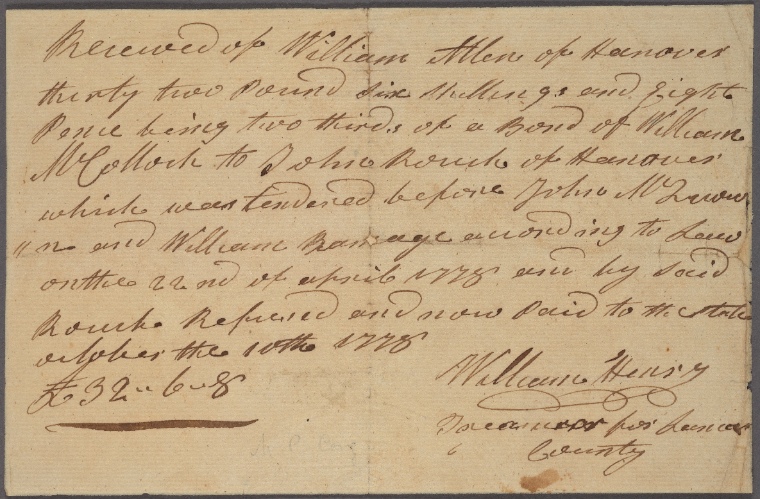 Received of William Allen of Hanover
thirty two Pound Six Shillings and Eight
Pence being two thirds of a Bond of William
McCollock to John Rouck of Hanover
which was tendered before John McQuow
"n and William Ramage according to Law
on the 22nd of april 1778 and by Said
Rouck Refused and now Paid to the State
october the 10th 1778
£32"6"8
William Henry
Treasurer for Lancas
County